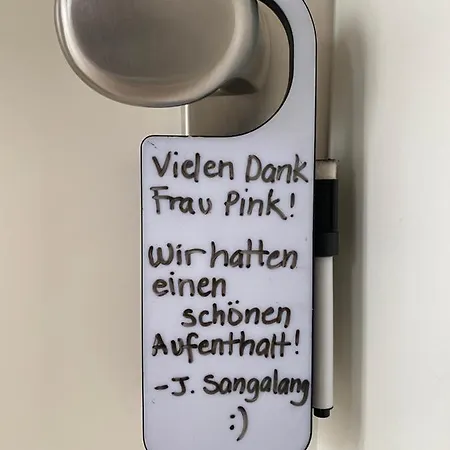 Vielen Dank
Frau Pink!
Wir hatten
einen
schönen
Aufenthalt!
-J. Sangalang
:)